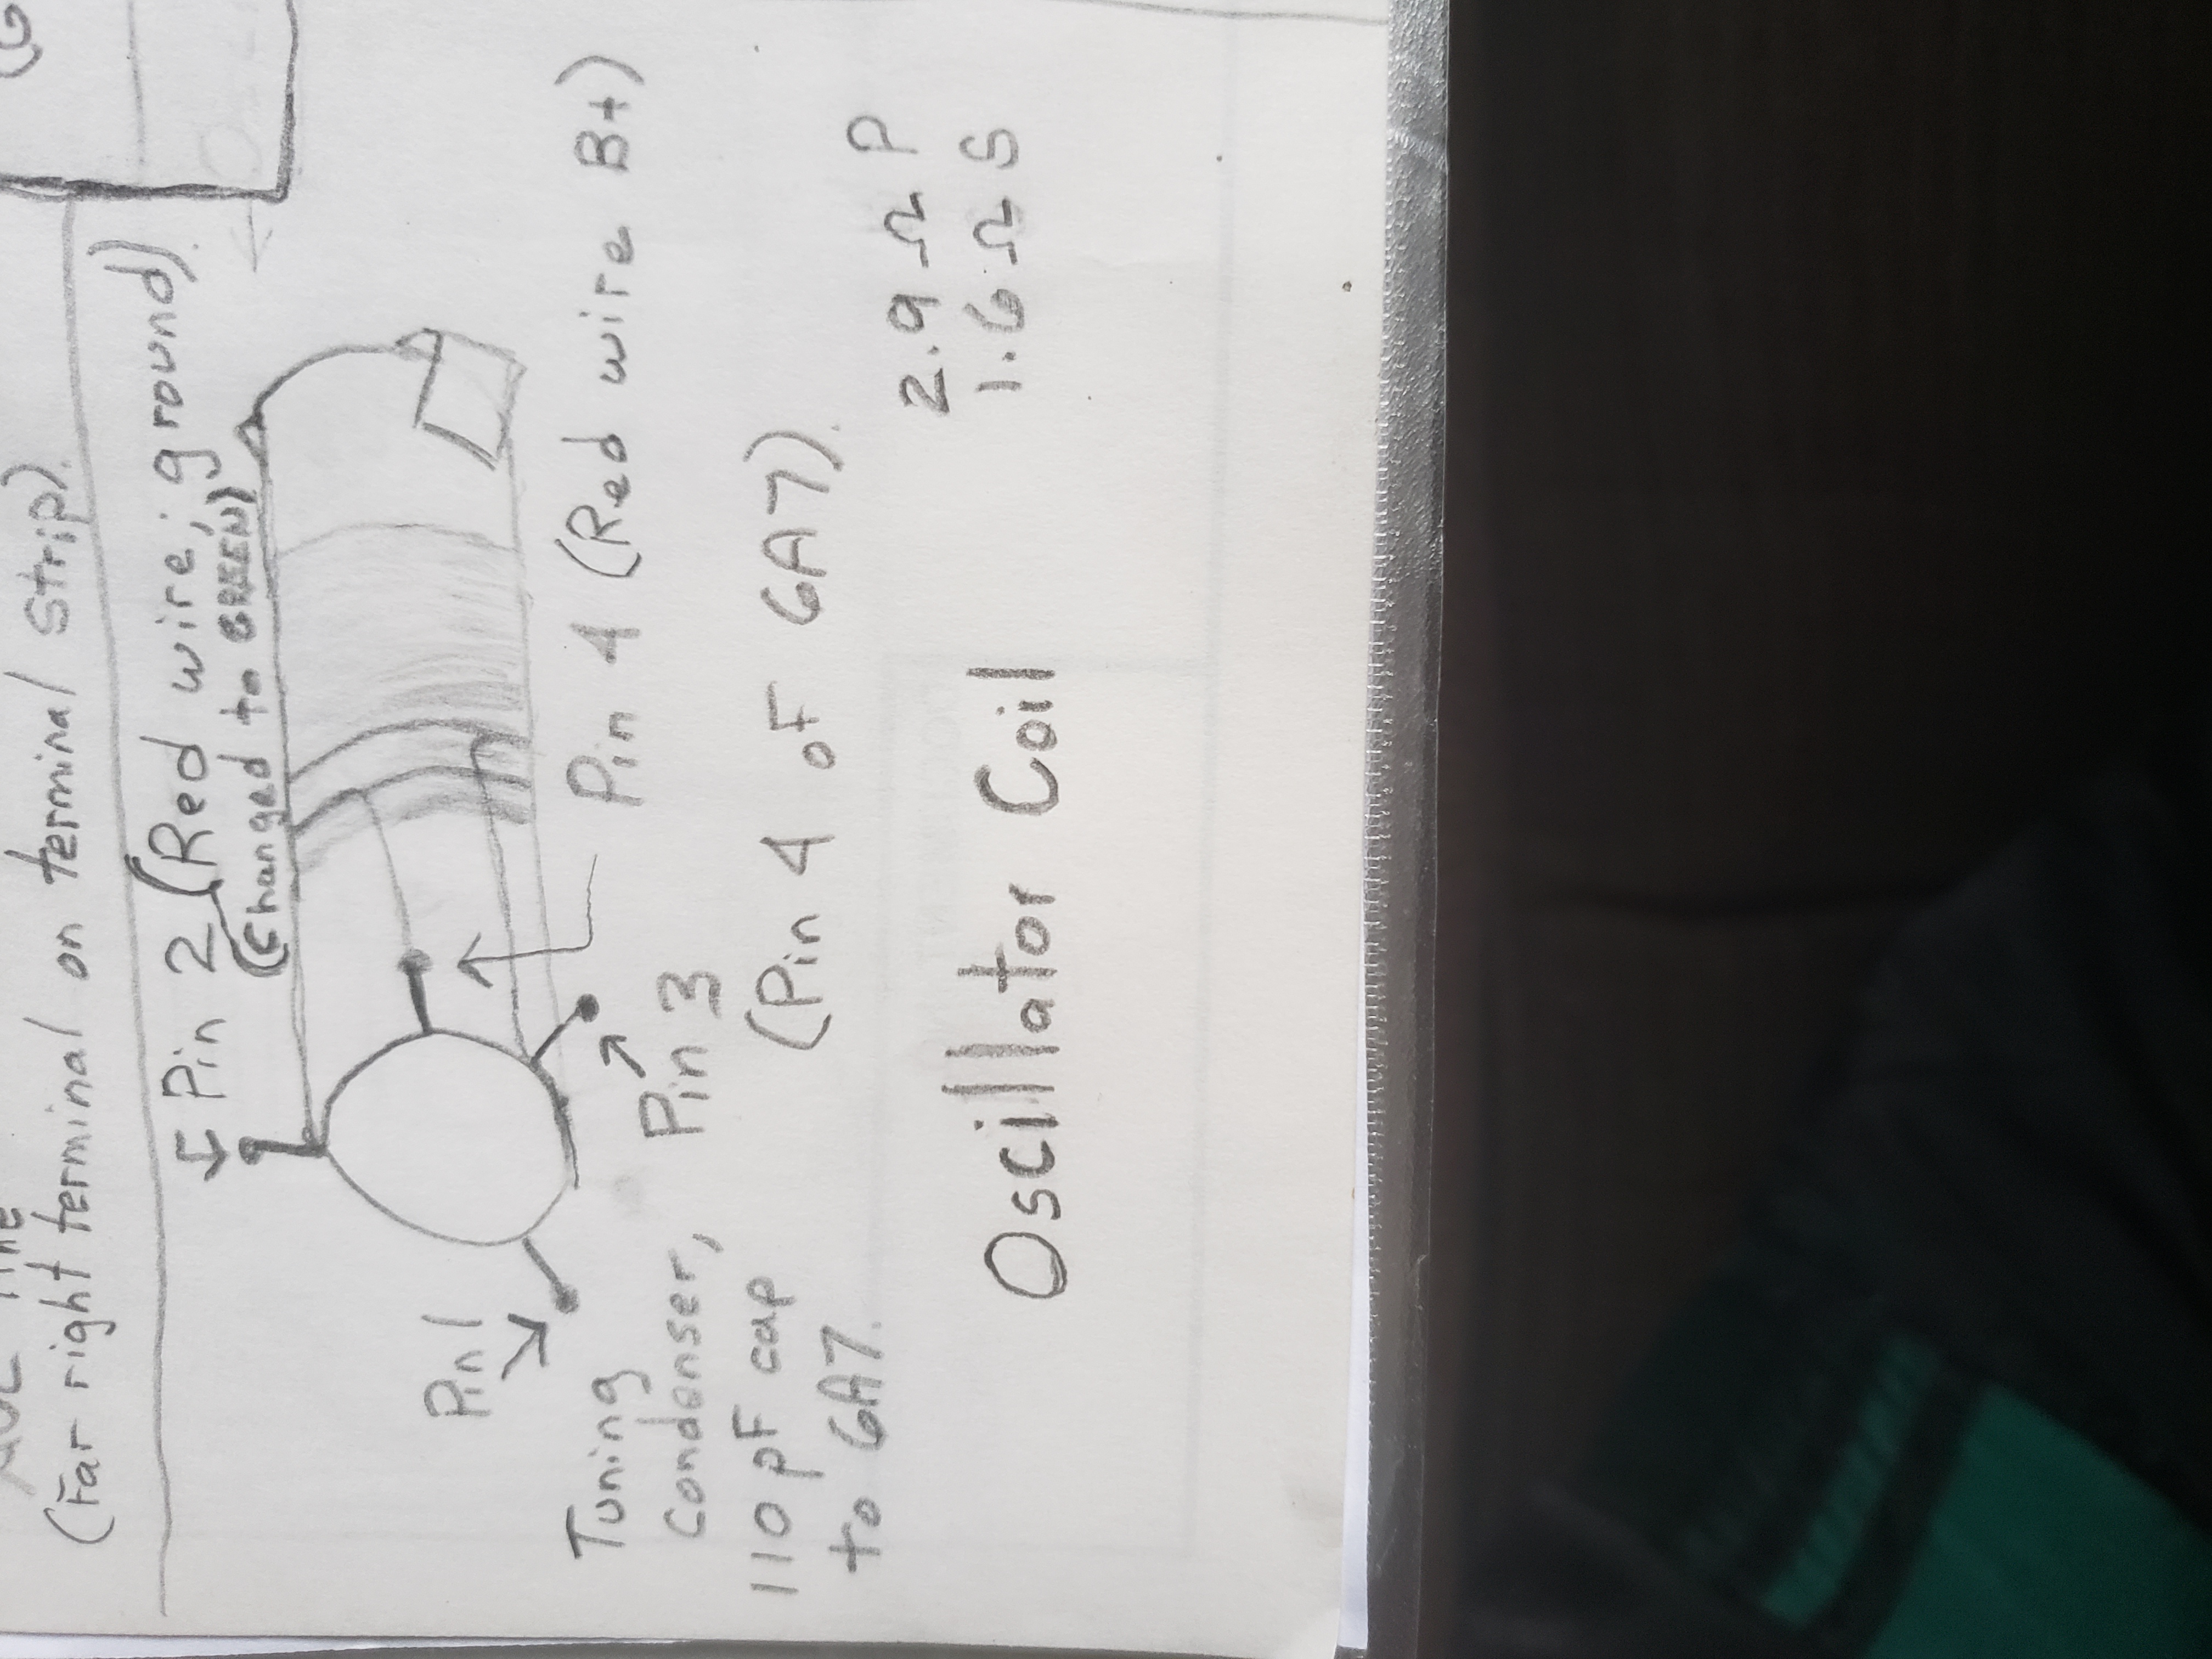 (Far right terminal on terminal strip).
Pin 2 (Red wire; ground).
(Changed to GREEN)
Pin 1
Pin 4 (Red wire B+)
Pin 3
(Pin 4 of 6A7).
Tuning
Condenser,
110 pF cap
to 6A7.
2.9 Ω P
1.6 Ω S
Oscillator Coil